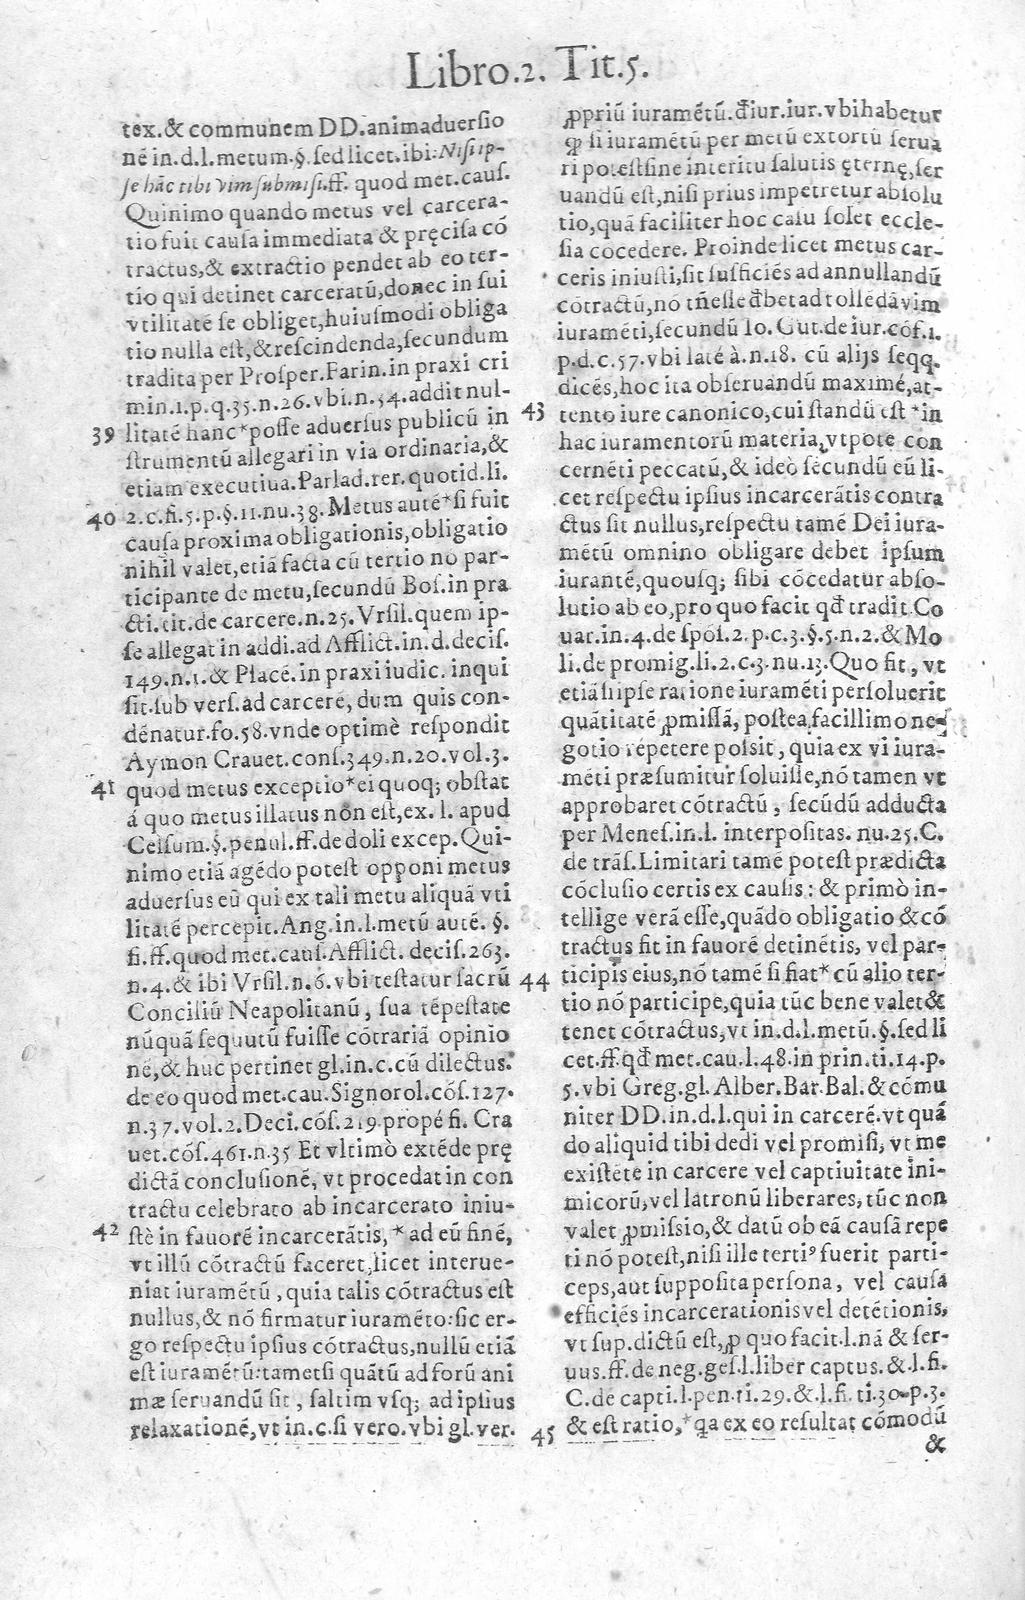 Libro.2. Tit.5.
tex.& communem DD.animaduersio
nē in.d.l.metum.§.sed licet.ibi.Nisi ip-
se hāc tibi vim submisi.ff. quod met.caus.
Quinimo quando metus vel carcera-
tio fuit causa immediata & pręcisa cō
tractus,& extractio pendet ab eo ter-
tio qui detinet carceratū,donec in sui
vtilitatē se obliget,huiusmodi obliga
tio nulla est,& rescindenda,secundum
tradita per Prosper.Farin.in praxi cri
min.1.p.q.35.n.26.vbi.n.34.addit nul-
39 litatē hanc*posse aduersus publicū in
strumentū allegari in via ordinaria,&
etiam executiua.Parlad.rer.quotid.li.
40 2.c.fi.5.p.§.11.nu.38.Metus autē*si fuit
causa proxima obligationis,obligatio
nihil valet,etiā facta cū tertio no par-
ticipante de metu,secundū Bos.in pra
cti.tit.de carcere.n.25.Vrsil.quem ip-
se allegat in addi.ad Afflict.in.d.decis.
149.n.1.& Placē.in praxi iudic.inqui
sit.sub vers.ad carcerē,dum quis con-
dēnatur.fo.58.vnde optimè respondit
Aymon Crauet.cons.349.n.20.vol.3.
41 quod metus exceptio*ei quoq; obstat
á quo metus illatus non est,ex.l.apud
Celsum.§.penul.ff.de doli excep.Qui-
nimo etiā agēdo potest opponi metus
aduersus eū qui ex tali metu aliquā vti
litatē percepit.Ang.in.l.metū autē. §.
fi.ff.quod met.caus.Afflict.decis.263.
n.4.& ibi Vrsil.n.6.vbi testatur sacrū
Conciliū Neapolitanū, sua tēpestate
nūquā sequutū fuisse cōtrariā opinio
nē,& huc pertinet gl.in.c.cū dilectus.
de eo quod met.cau.Signorol.cōs.127.
n.37.vol.2.Deci.cōs.219.propé fi. Cra
uet.cōs.461.n.35 Et vltimò extēde prę
dictā conclusionē, vt procedat in con
tractu celebrato ab incarcerato iniu-
42 stè in fauorē incarcerātis,* ad eū finē,
vt illū cōtractū faceret,licet interue-
niat iuramētū,quia talis cōtractus est
nullus,& nō firmatur iuramēto:sic er-
go respectu ipsius cōtractus,nullū etiā
est iuramētū:tametsi quātū ad forū ani
mæ seruandū sit, saltim vsq; ad ipsius
relaxationē,vt in.c.si vero.vbi gl.ver.
ꝓpriū iuramētū.đ iur.iur.vbi habetur
ꝙ si iuramētū per metū extortū serua
ri potest sine interitu salutis ęternę,ser
uandū est,nisi prius impetretur absolu
tio,quā faciliter hoc casu solet eccle-
sia cōcedere. Proinde licet metus car-
ceris iniusti,sit sufficiēs ad annullandū
cōtractū,nō tn̄ esse đbet ad tollēdā vim
iuramēti,secundū Io. Gut.de iur.cōf.1.
p.d.c.57.vbi latē à.n.18. cū alijs seqq.
dicēs,hoc ita obseruandū maximē,at-
43 tento iure canonico,cui standū est *in
hac iuramentorū materia,vtpote con
cernēti peccatū,& ideò secundū eū li-
cet respectu ipsius incarcerātis contra
ctus sit nullus,respectu tamē Dei iura-
mētū omnino obligare debet ipsum
iurantē,quousq; sibi cōcedatur abso-
lutio ab eo,pro quo facit qđ tradit.Co
uar.in.4.de spōs.2.p.c.3.§.5.n.2.& Mo
li.de promig.li.2.c.3.nu.13.Quo fit, vt
etiā si ipse ratione iuramēti persoluerit
quātitatē ꝓmissā, postea facillimo ne-
gotio repetere possit, quia ex vi iura-
mēti præsumitur soluisse,nō tamen vt
approbaret cōtractū, secūdū adducta
per Menes.in.l. interpositas. nu.25.C.
de trās.Limitari tamē potest prædicta
cōclusio certis ex causis: & primò in-
tellige verā esse,quādo obligatio & cō
tractus fit in fauorē detinētis, vel par-
44 ticipis eius,nō tamē si fiat* cū alio ter-
tio nō participe,quia tūc bene valet &
tenet cōtractus,vt in.d.l.metū.§.sed li
cet.ff.qđ met.cau.l.48.in prin.ti.14.p.
5.vbi Greg.gl.Alber.Bar.Bal.& cōmu
niter DD.in.d.l.qui in carcerē.vt quā
do aliquid tibi dedi vel promisi, vt me
existēte in carcere vel captiuitate ini-
micorū,vel latronū liberares, tūc non
valet ꝓmissio,& datū ob eā causā repe
ti nō potest,nisi ille tertiꝰ fuerit parti-
ceps,aut supposita persona, vel causa
efficiēs incarcerationis vel detētionis,
vt sup.dictū est,ꝓ quo facit.l.nā & ser-
uus.ff.de neg.ges.l.liber captus.& .l.fi.
C.de capti.l.pen.ti.29.&.l.fi.ti.30.p.3.
45 & est ratio,*qa ex eo resultat cōmodū
&